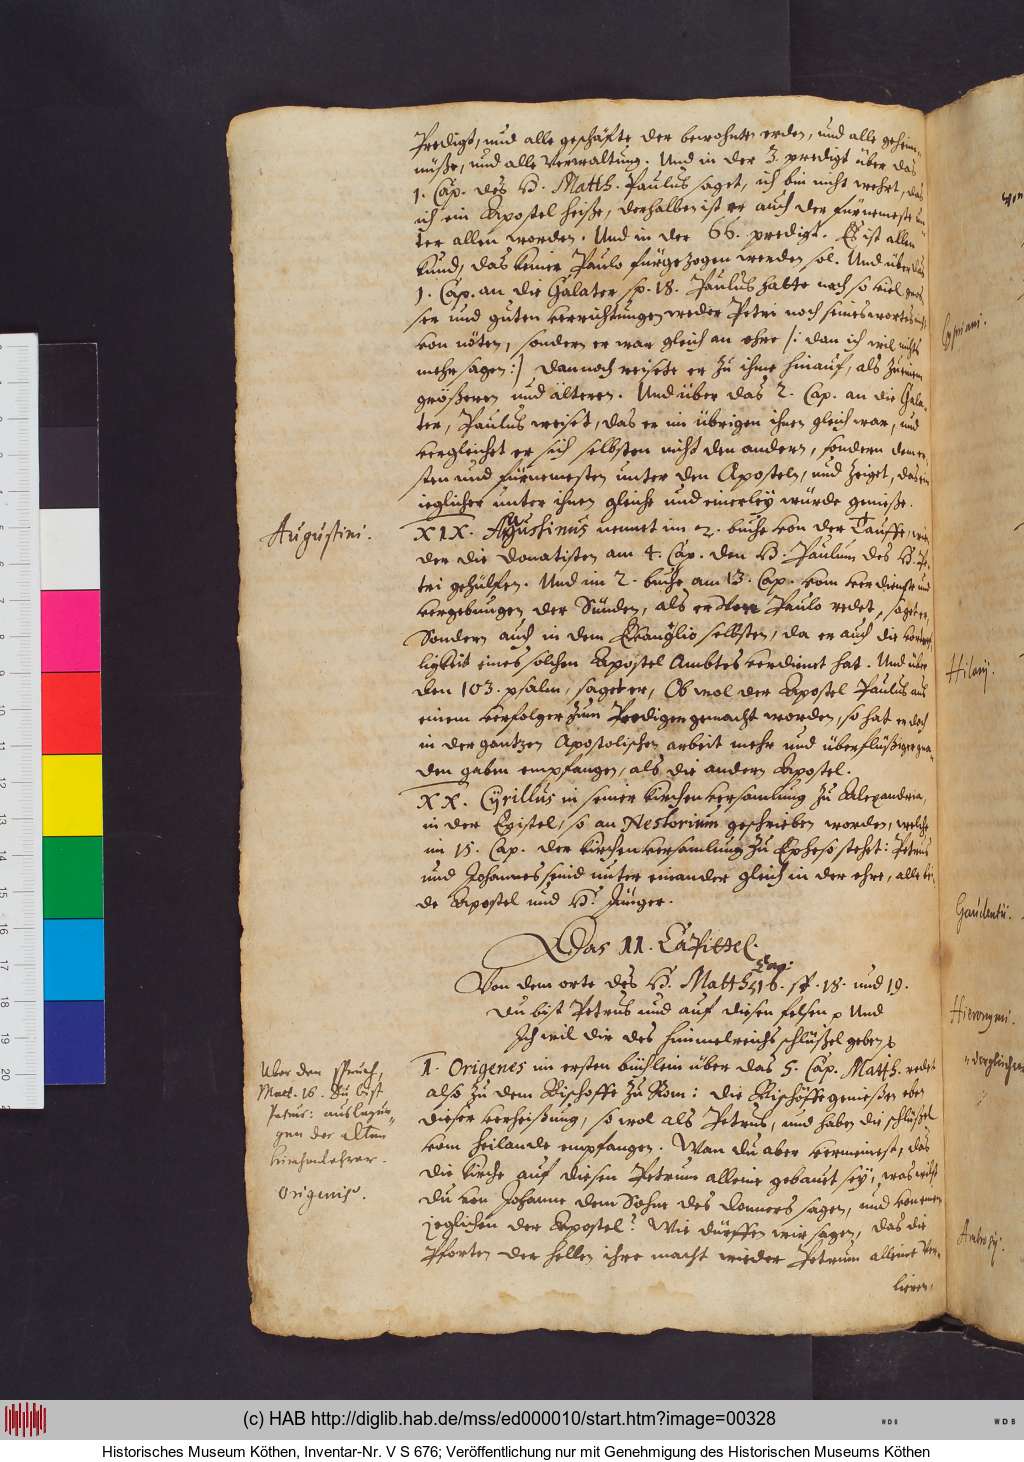 Predigt, und alle geschäffte der bewohnten erden, und alle geheim-
nüße, und alle Verwaltung. Und in der 3. predigt über das
1. Cap. des H. Matth. Paulus saget, ich bin nicht wehrt, das
ich ein Apostel heiße, derhalben ist er auch der fürnemeste un-
ter allen worden. Und in der 66. predigt. Es ist allen
kund, das keiner Paulo fürgezogen werden sol. Und über das
1. Cap. an die Galater sp. 18. Paulus hatte nach so viel gros-
sen und guten verrichtungen weder Petri noch seines wortes
von nöten, sondern er war gleich an ehre /: dan ich wil nichts
mehr sagen :/ dannoch reisete er zu ihme hinauf, als zu einem
größeren und älteren. Und über das 2. Cap. an die Gala-
ter, Paulus weiset, das er im übrigen ihnen gleich war, und
vergleichet er sich selbsten nicht den andern, sondern dem er-
sten und fürnemesten unter den Aposteln, und zeiget, das ein
ieglicher unter ihnen gleiche und einerley würde genieße.
Augustini.
XIX. Augustinus nennet im 2. buche von der Tauffe, wie-
der die Donatisten am 4. Cap. den H. Paulum des H. Pe-
tri gehülfen. Und im 2. buche am 13. Cap. vom verdienst und
vergebungen der Sünden, als er von Paulo redet, saget er,
Sondern auch in dem Evanglio selbsten, da er auch die
ligkeit eines solchen Apostel Ambtes verdienet hat. Und über
den 103. psalm, saget er, Ob wol der Apostel Paulus aus
einem verfolger zum Prediger gemacht worden, so hat er doch
in der gantzen Apostolischen arbeit mehr und überflüßiger gna-
den gaben empfangen, als die andern Apostel.
XX. Cyrillus in seiner kirchen versamlung zu Alexandria,
in der Epistel, so an Nestorium geschrieben worden, welche
im 15. Cap. der kirchen versamlung zu Epheso stehet: Petrus
und Johannes seind unter einander gleich in der ehre, alle bei-
de Apostel und H. Jünger.
Das II. Capittel.
Von dem orte des H. Matth. Cap: 16. sp. 18. und 19.
du bist Petrus und auf diesen felsen p Und
Ich wil dir des himmelreichs schlüßel geben p
Uber den spruch,
Matt. 16. Du bist
Petrus: auslegun-
gen der Alten
kirchenlehrer.
Origenis.
I. Origenes im ersten büchlein über das 5. Cap. Matth. redet
also zu dem Bischoffe zu Rom: die Bischöffe genießen eben
dieser verheißung, so wol als Petrus, und haben die schlüßel
vom heilande empfangen. Wan du aber vermeinest, das
die kirche auf diesen Petrum alleine gebauet sey, was wilst
du von Johanne dem Sohne des donners sagen, und von einem
jeglichen der Apostel? Wie dürffen wir sagen, das die
Pforten der hellen ihre macht wieder Petrum alleine ver-
lieren,
Cypriani.
Hilarij.
Gaudentii.
Hieronymi.
Ambrosij.
(c) HAB http://diglib.hab.de/mss/ed000010/start.htm?image=00328
WDB
WDB
Historisches Museum Köthen, Inventar-Nr. V S 676; Veröffentlichung nur mit Genehmigung des Historischen Museums Köthen